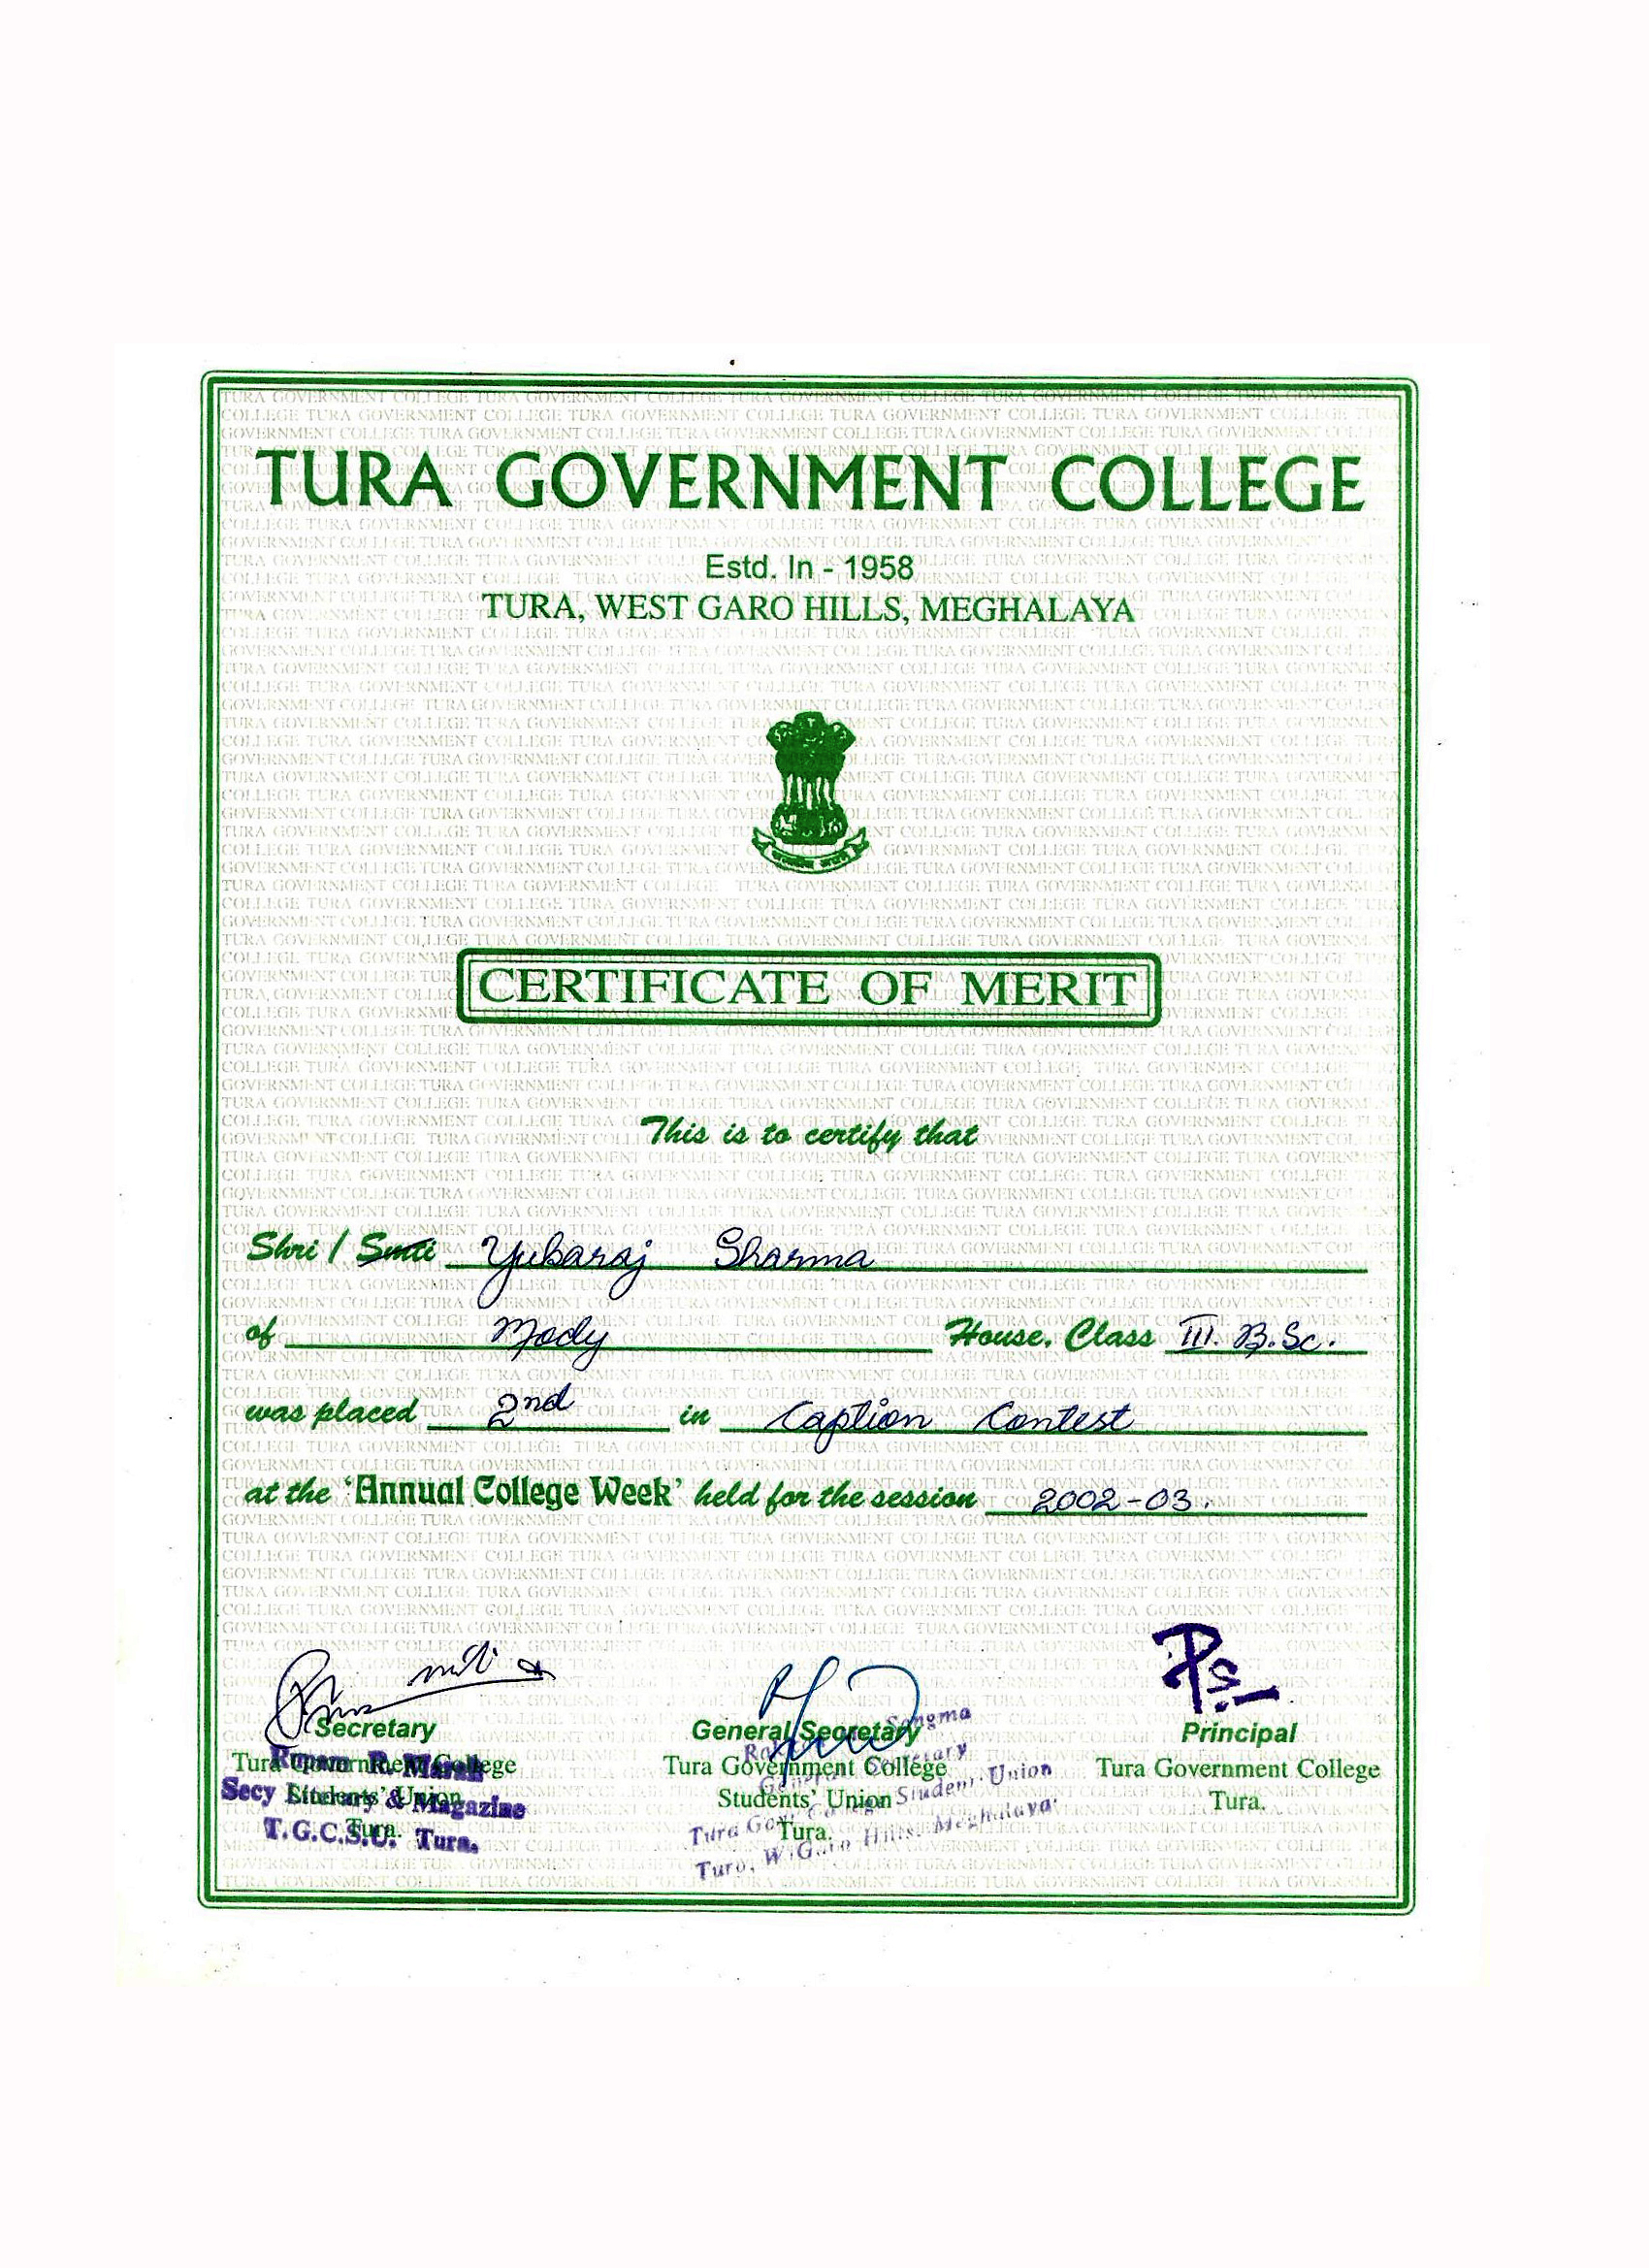 TURA GOVERNMENT COLLEGE
Estd. In - 1958
TURA, WEST GARO HILLS, MEGHALAYA
CERTIFICATE OF MERIT
This is to certify that
Shri / Smti Yubaraj Sharma
of Mody House, Class III. B.Sc.
was placed 2nd in Caption Contest
at the 'Annual College Week' held for the session 2002-03.
Secretary
Tura Government College
Students' Union
Tura.
Secy Literary & Magazine
T.G.C.S.U. Tura.
General Secretary
Tura Government College
Students' Union
Tura.
Sangma
General Secretary
Tura Govt. College Student Union
Tura, W. Garo Hills. Meghalaya
Principal
Tura Government College
Tura.